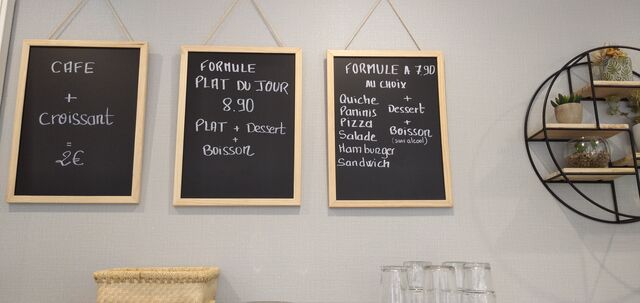 CAFE
+
Croissant
=
2€
FORMULE
PLAT DU JOUR
8.90
PLAT + Dessert
+
Boisson
FORMULE A 7.90
AU CHOIX
Quiche
Paninis
Pizza
Salade
Hamburger
Sandwich
+
Dessert
+
Boisson
(sans alcool)